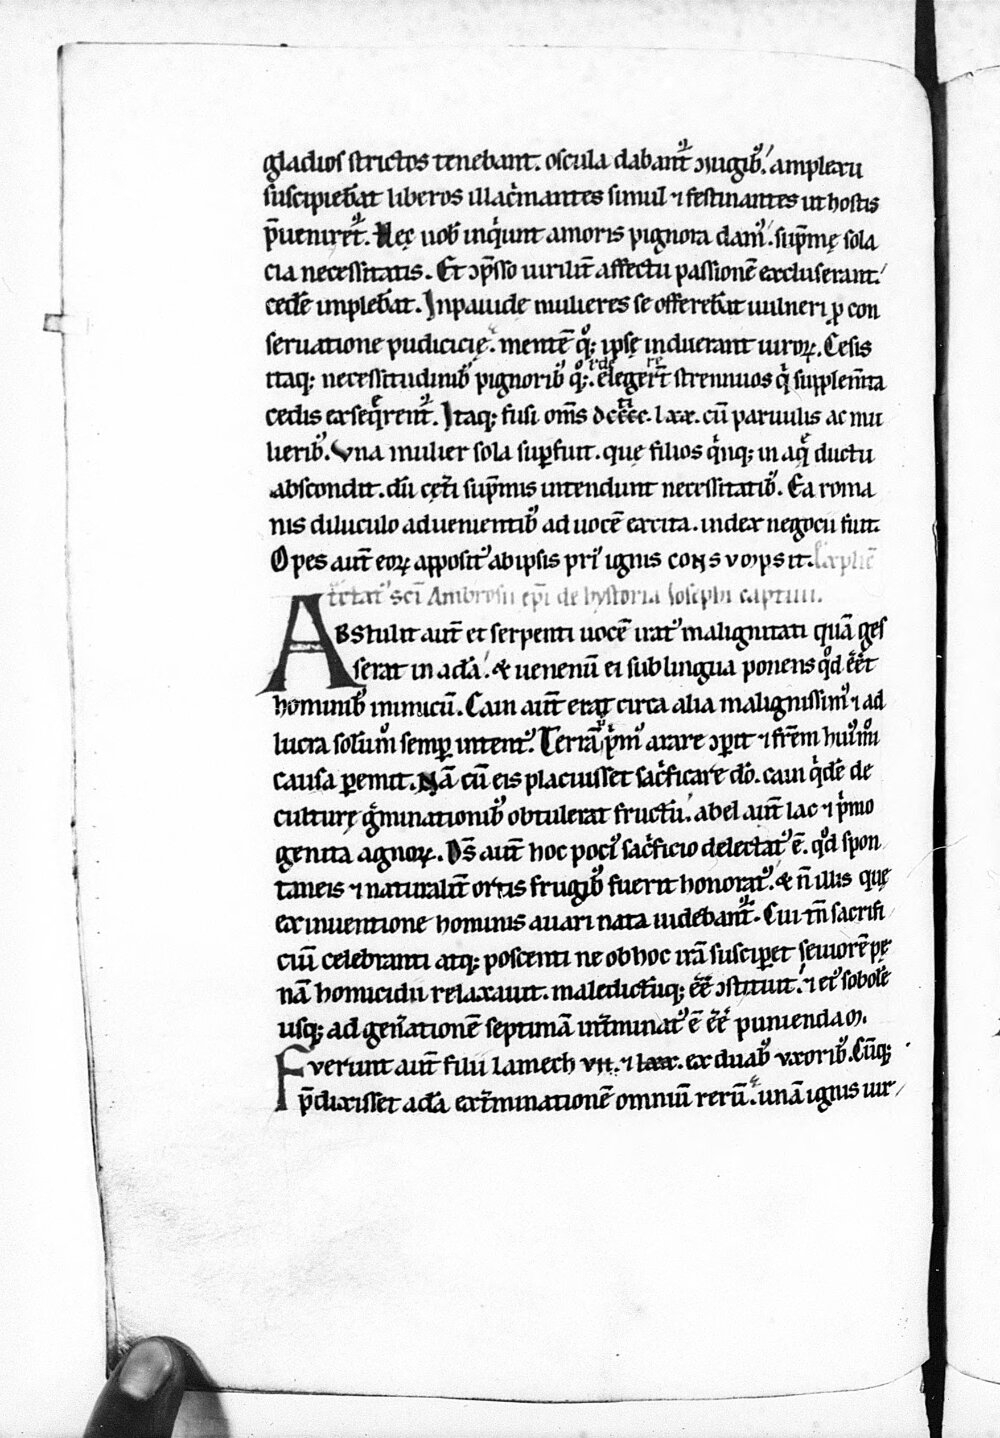 gladios strictos tenebant. oscula dabant᷒ ↄiugib᷒. amplexu
suscipieb̄at liberos illac̓mantes simul ⁊ festinantes ut hostis
p̄uenirēt᷒. Hęc uob̄ inq̓unt amoris pignora dam᷒. sup̄mę sola
cia necessitatis. Et ↄp̄sso uirilit̄ affectu passionē excluserant.
cedē impleb̄at. Inpauide mulieres se offereb̄at uulneri ꝓ con
seruatione pudicicię. mentē q᷒; ipsę induerant uiroꝝ. Cesis
itaq; necessitudinib᷒ pignorib᷒ q᷒;. elegert̄ strennuos q̓ supplem̄ta
cedis exseq̄rent᷒. Itaq; fusi om̄s dcccc. lxx. cū paruulis ac mu
lierib᷒. Vna mulier sola suꝑfuit. quę filios q̓nq; in aq̨ ductu
abscondit. dū cęt̄i sup̄mis intendunt necessitatib᷒. Ea roma
nis diluculo aduenientib᷒ ad uocē excita. index negocii fuit.
Opes aut̄ eoꝝ apposit᷒ ab ipsis pri᷒ ignis consumpsit. Explic̄
tr̄ctat᷒ sc̄i Ambrosii ep̄i de hystoria Iosephi captiui.
Abstulit aut̄ et serpenti uocē irat᷒ malignitati quā ges
serat in adā. & uenenū ei sub lingua ponens q̊d ēēt
hominib᷒ inimicū. Cain aut̄ erat circa alia malignissim᷒ ⁊ ad
lucra solum᷒ semꝑ intent᷒. Terrā p̓m᷒ arare ↄpit ⁊ fr̄em hui᷒m᷒i
causa ꝑemit. Nā cū eis placuisset sac̓ficare dō. cain q̓dē de
culturę g̓minationib᷒ obtulerat fructū. abel aut̄ lac ⁊ p̓mo
genita agnoꝝ. Ds̄ aut̄ hoc poci᷒ sac̓ficio delectat᷒ ē. q̊d spon
taneis ⁊ naturalit̄ ortis frugib᷒ fuerit honorat᷒. & n̄ illis quę
ex inuentione hominis auari nata uidebant᷒. Cui tn̄ sacrifi
ciū celebranti atq; poscenti ne ob hoc irā susciꝑet seuiorē pę
nā homicidii relaxauit. maledictūq; ēē ↄstituit. ⁊ ei᷒ sobolē
usq; ad gen̄ationē septimā int̄minat᷒ ē ēē puniendam.
Fuerunt aut̄ filii Lamech vii. ⁊ lxx. ex duab᷒ vxorib᷒. Cūq;
p̄dixisset adā ext̄minationē omniū rerū. unā ignis uir